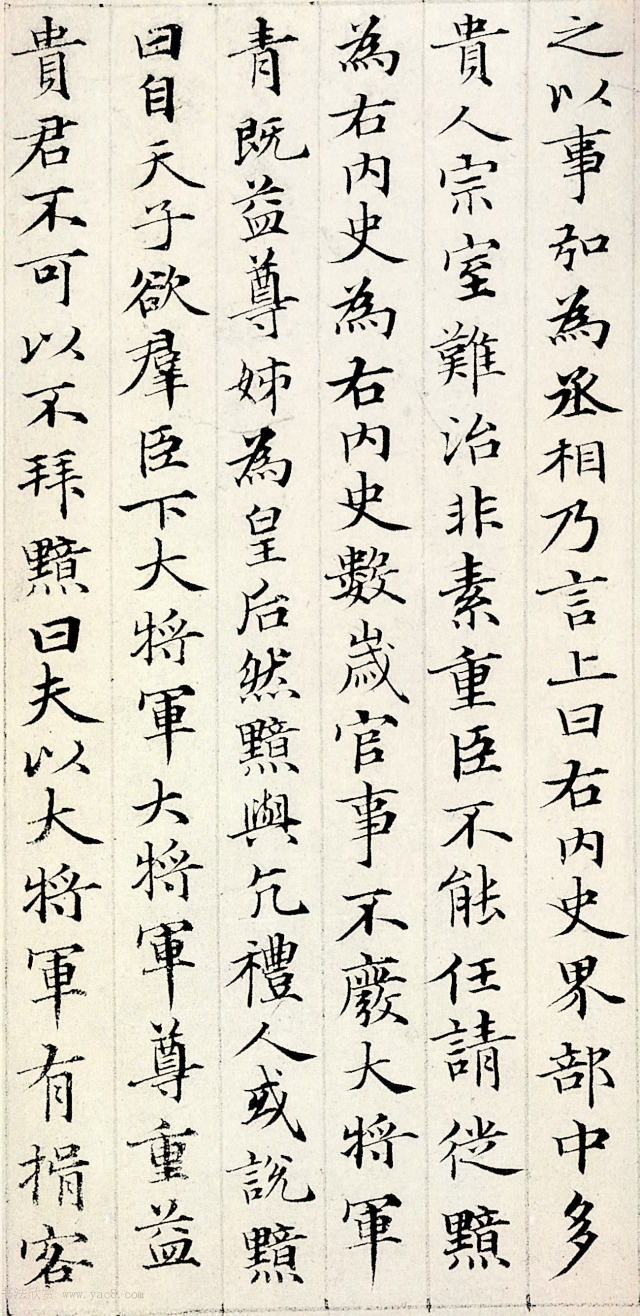 之以事弘為丞相乃言上曰右內史界部中多
貴人宗室難治非素重臣不能任請徙黯
為右內史為右內史數歲官事不廢大將軍
青既益尊姊為皇后然黯與亢禮人或說黯
曰自天子欲羣臣下大將軍大將軍尊重益
貴君不可以不拜黯曰夫以大將軍有揖客
书法欣赏 www.yac8.com